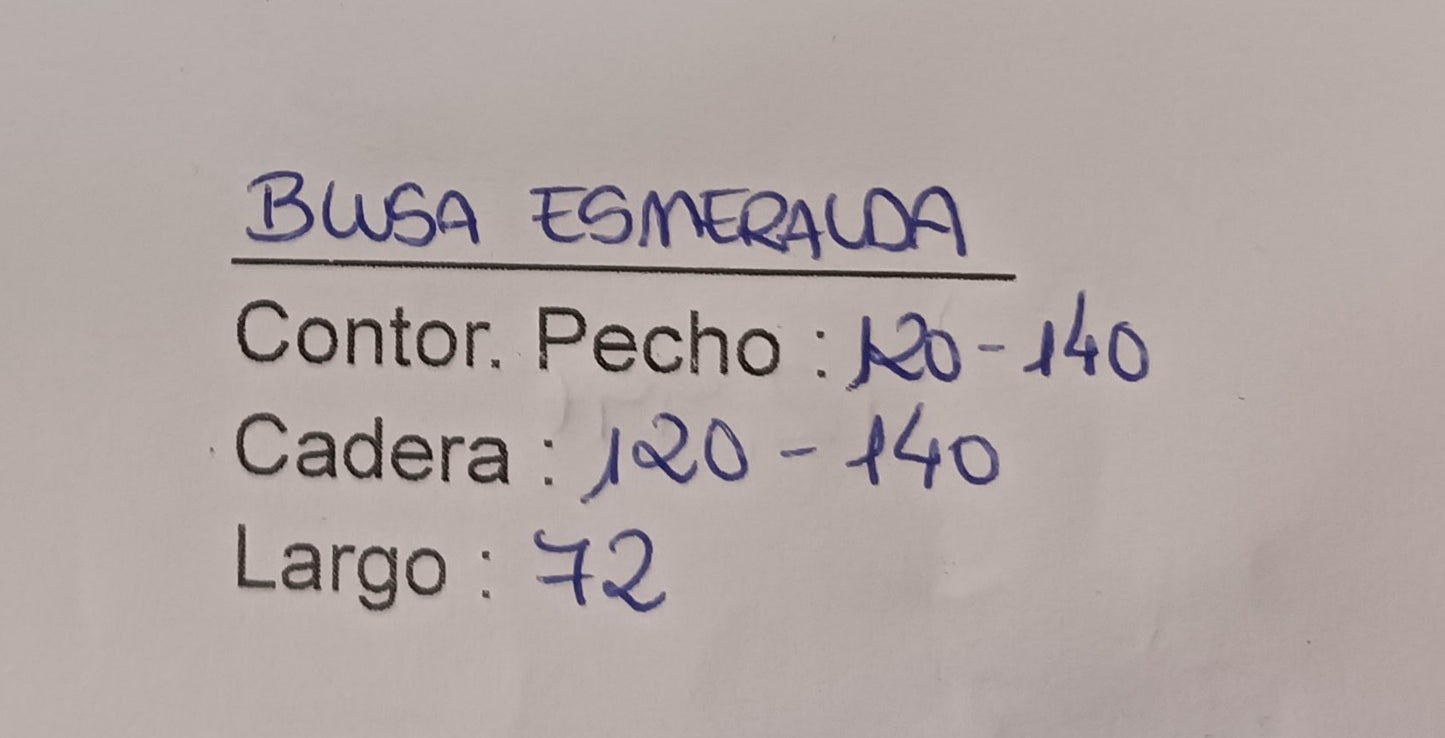 BLUSA ESMERALDA
Contor. Pecho : 120-140
Cadera : 120 - 140
Largo : 72